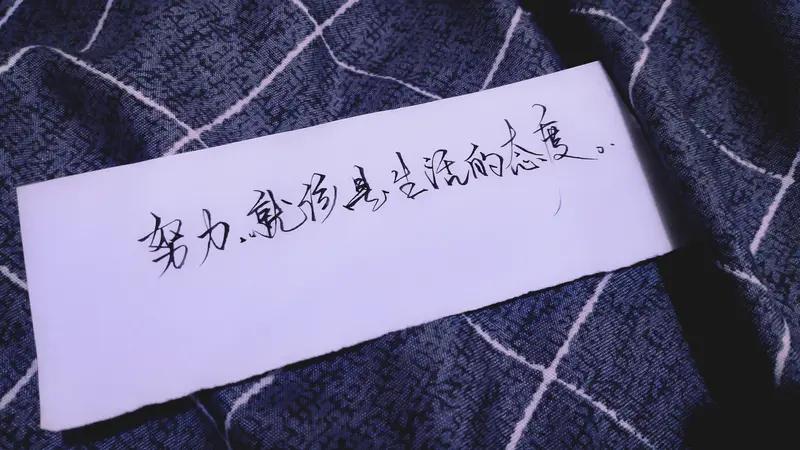 努力,就该是生活的态度。